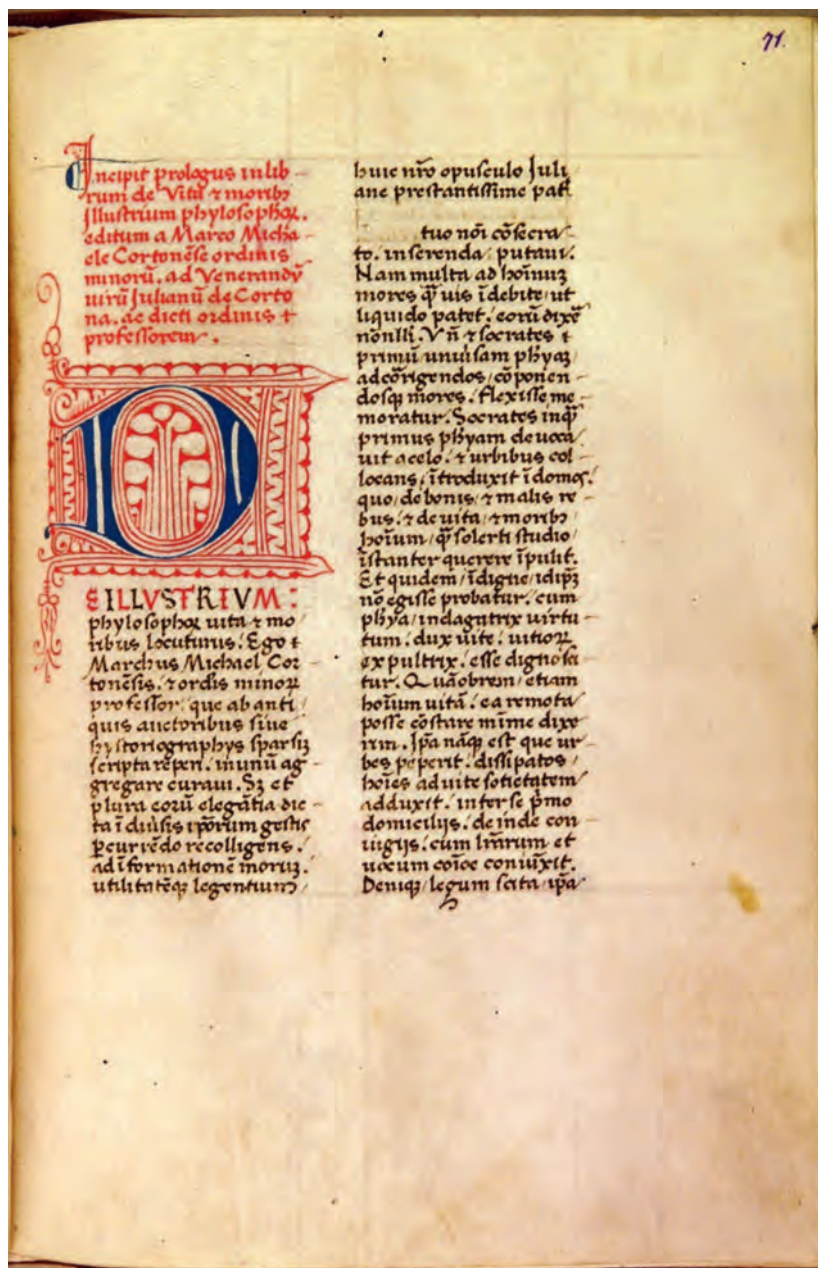 71.
Incipit prologus in lib-
rum de Vita ⁊ moribꝫ
illustrium phylosophoꝝ.
editum a Marco Micha-
ele Cortonēse ordinis
minorū. ad Venerandū
uirū Julianū de Corto
na. ac dicti ordinis ⁊
professorem.
D
E ILLVSTRIVM:
phylosophoꝝ uita ⁊ mo
ribus locuturus. Ego ⁊
Marchus Michael Cor
tonēsis. ⁊ ordis minoꝝ
professor. que ab anti
quis auctoribus siue
hystoriographys sparsiꝫ
scripta reperi. in unū ag-
gregare curaui. Sꝫ et
plura eorū elegātia dic-
ta ī diūsis ipōrum gestis
ꝑcurrēdo recolligens.
ad īformationē moruꝫ.
utilitatēqꝫ legentium
huic nr̄o opusculo Juli
ane prestantissime pat̄
tuo nōi cōsecra
to. inserenda putaui.
Nam multa ad hoīnuꝫ
mores q̄ uis īdebite, ut
liquido patet. eorū dixē
nōnlli. Vñ ⁊ socrates
primū uniūsam phyaꝫ
ad cōrigendos, cōponen-
dosqꝫ mores. flexisse me-
moratur. Socrates inq̄
primus phyam deuoca
uit a celo. ⁊ urbibus col-
locans, ītroduxit ī domos.
quo, de bonis, ⁊ malis re-
bus. ⁊ de uita, ⁊ moribꝫ
hoīum, q̄ solerti studio
īstanter querere īpulit.
Et quidem, īdigne, idipꝫ
nō egisse probatur. cum
phya, indagatrix uirtu-
tum. dux uite. uitioꝝ
expultrix. esse dignosci
tur. Quāobrem, etiam
hoīum uitā. ea remota
posse cōstare mīme dixe
rim. Ipā nāqꝫ est que ur-
bes peperit. dissipatos
hoīes ad uite sotietatem
adduxit. inter se p̄mo
domicilijs. deinde con
iugijs. cum lr̄arum et
uocum coīoe coniūxit.
Deniqꝫ, legum scita, ipā